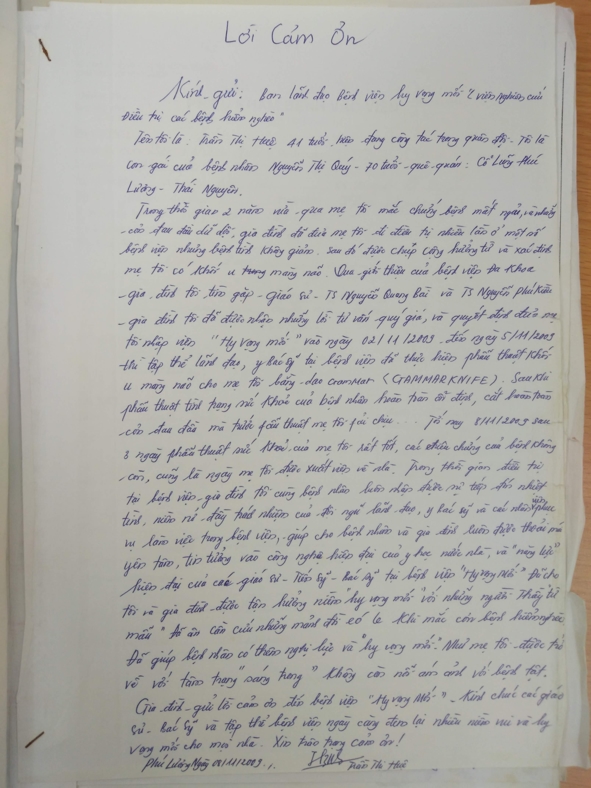 Lời Cảm Ơn
Kính gửi: Ban lãnh đạo bệnh viện hy vọng mới "viện nghiên cứu
Điều trị các bệnh hiểm nghèo"
Tên tôi là: Trần Thị Huê 41 tuổi, hiện đang công tác trong quân đội - Tôi là
con gái của bệnh nhân Nguyễn Thị Quý - 70 tuổi - quê quán: Cổ Lũng Phú
Lương - Thái Nguyên.
Trong thời gian 2 năm vừa qua mẹ tôi mắc chứng bệnh mất ngủ, và những
cơn đau đầu dữ dội, gia đình đã đưa mẹ tôi đi điều trị nhiều lần ở một số
bệnh viện nhưng bệnh tình không giảm. Sau đó được chụp cộng hưởng từ và xác định
mẹ tôi có khối u trong màng não. Qua giới thiệu của bệnh viện Đa khoa
gia đình tôi tìm gặp giáo sư - TS Nguyễn Quang Bài và TS Nguyễn Phú Kiều
gia đình tôi đã được nhận những lời tư vấn quý giá, và quyết định đưa mẹ
tôi nhập viện "Hy vọng mới" vào ngày 02/11/2009. đến ngày 5/11/2009
thì tập thể lãnh đạo, y bác sỹ tại bệnh viện đã thực hiện phẫu thuật khối
u màng não cho mẹ tôi bằng dao crammar (GAMMARKNIFE). Sau khi
phẫu thuật tình trạng sức khoẻ của bệnh nhân hoàn toàn ổn định, cắt hoàn toàn
cơn đau đầu mà trước phẫu thuật mẹ tôi phải chịu... Tối nay 8/11/2009 sau
3 ngày phẫu thuật sức khoẻ của mẹ tôi rất tốt, các triệu chứng của bệnh không
còn, cũng là ngày mẹ tôi được xuất viện về nhà. Trong thời gian điều trị
tại bệnh viện, gia đình tôi cùng bệnh nhân luôn nhận được sự tiếp đón nhiệt
tình, niềm nở đầy trách nhiệm của đội ngũ lãnh đạo, y bác sỹ và các nhân viên phục
vụ làm việc trong bệnh viện, giúp cho bệnh nhân và gia đình luôn được thoải mái
yên tâm, tin tưởng vào công nghệ hiện đại của y học nước nhà, và "năng lực"
hiện đại của các giáo sư - Tiến sỹ - bác sỹ tại bệnh viện "Hy vọng Mới" Đã cho
tôi và gia đình được tận hưởng niềm "hy vọng mới" với những người Thầy "từ
mẫu" đã ân cần cứu những mảnh đời éo le khi mắc căn bệnh hiểm nghèo
Đã giúp bệnh nhân có thêm nghị lực và "hy vọng mới". Như mẹ tôi được trở
về với tâm trạng "sáng trong" không còn nỗi ám ảnh với bệnh tật.
Gia đình gửi lời cảm ơn đến bệnh viện "Hy vọng Mới". Kính chúc các giáo
sư - bác sỹ và tập thể bệnh viện ngày càng đem lại nhiều niềm vui và hy
vọng mới cho mọi nhà. Xin trân trọng cảm ơn!
Phú Lương Ngày 08/11/2009.
Trần Thị Huê